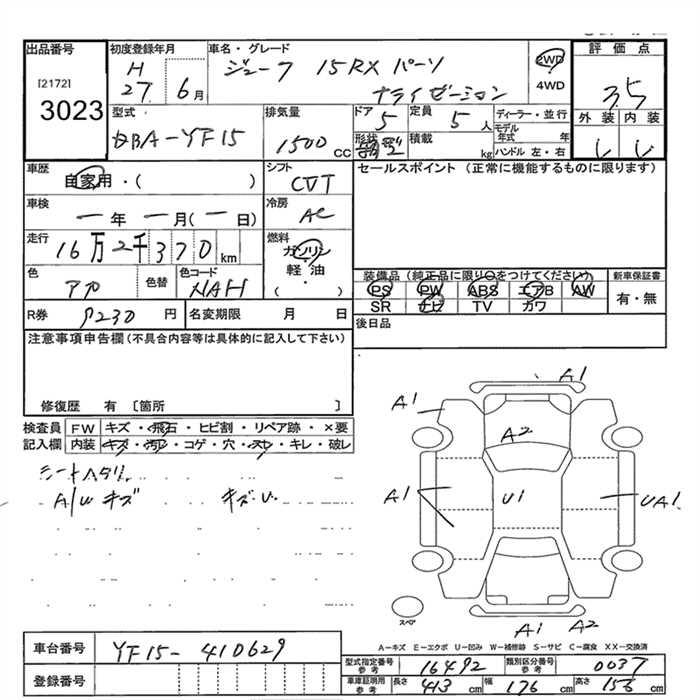 出品番号
[2172]
3023
初度登録年月
H
27. 6月
車名・グレード
ジューク 15RX パーソ
ナライゼーション
2WD
4WD
評価点
3.5
外装 内装
型式
DBA-YF15
排気量
1500 CC
ドア
5
定員
5 人
形状
積載
kg
ディーラー・並行
モデル年式 年
ハンドル 左・右
車歴
自家用・( )
シフト
CVT
セールスポイント (正常に機能するものに限ります)
車検
一年 一月(一日)
冷房
AC
走行
16万2千370 km
燃料
ガソリン
軽・油
( )
色
色替
色コード
NAH
装備品 (純正品に限り○をつけてください)
PS PW ABS エアB AW
SR ナビ TV カワ
新車保証書
有・無
R券 円
名変期限 月 日
後日品
注意事項申告欄(不具合内容等は具体的に記入して下さい)
修復歴 有 [箇所 ]
検査員
記入欄
FW キズ・飛石・ヒビ割・リペア跡・×要
内装 キズ・汚れ・コゲ・穴・スレ・キレ・破レ
シートヘタリ
A/W キズ
A1
A1
A2
A1
U1
UA1
スペア
A1 A2
A-キズ E-エクボ U-凹み W-補修跡 S-サビ C-腐食 XX-交換済
車台番号
YF15-410629
登録番号
型式指定番号
参考
16492
類別区分番号
参考
0037
車庫証明用
参考
長さ 413 cm 幅 176 cm 高さ 156 cm